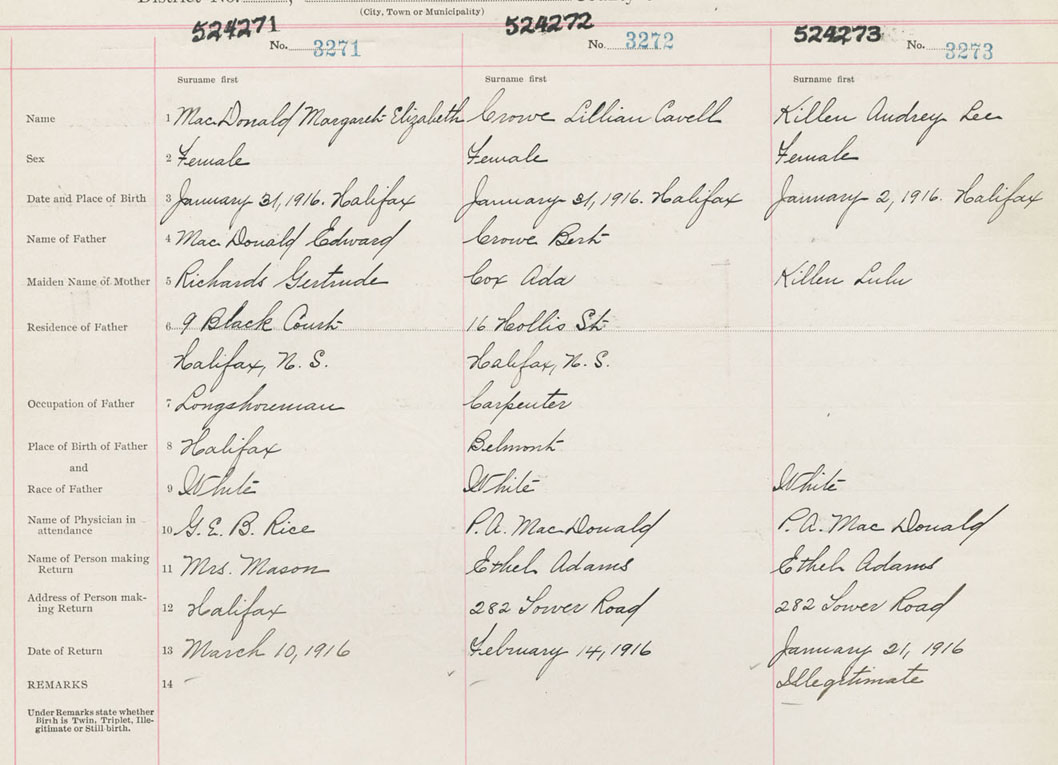 (City, Town or Municipality)
524271 524272 524273
No. 3271 No. 3272 No. 3273
Surname first Surname first Surname first
Name 1 MacDonald Margaret Elizabeth Crowe Lillian Cavell Killen Audrey Lee
Sex 2 Female Female Female
Date and Place of Birth 3 January 31, 1916. Halifax January 31, 1916. Halifax January 2, 1916. Halifax
Name of Father 4 MacDonald Edward Crowe Bert
Maiden Name of Mother 5 Richards Gertrude Cox Ada Killen Lulu
Residence of Father 6 9 Black Court 16 Hollis St.
Halifax, N. S. Halifax, N. S.
Occupation of Father 7 Longshoreman Carpenter
Place of Birth of Father 8 Halifax Belmont
and
Race of Father 9 White White White
Name of Physician in
attendance 10 G. E. B. Rice P. A. MacDonald P. A. MacDonald
Name of Person making
Return 11 Mrs. Mason Ethel Adams Ethel Adams
Address of Person mak-
ing Return 12 Halifax 282 Tower Road 282 Tower Road
Date of Return 13 March 10, 1916 February 14, 1916 January 21, 1916
REMARKS 14 Illegitimate
Under Remarks state whether
Birth is Twin, Triplet, Ille-
gitimate or Still-birth.